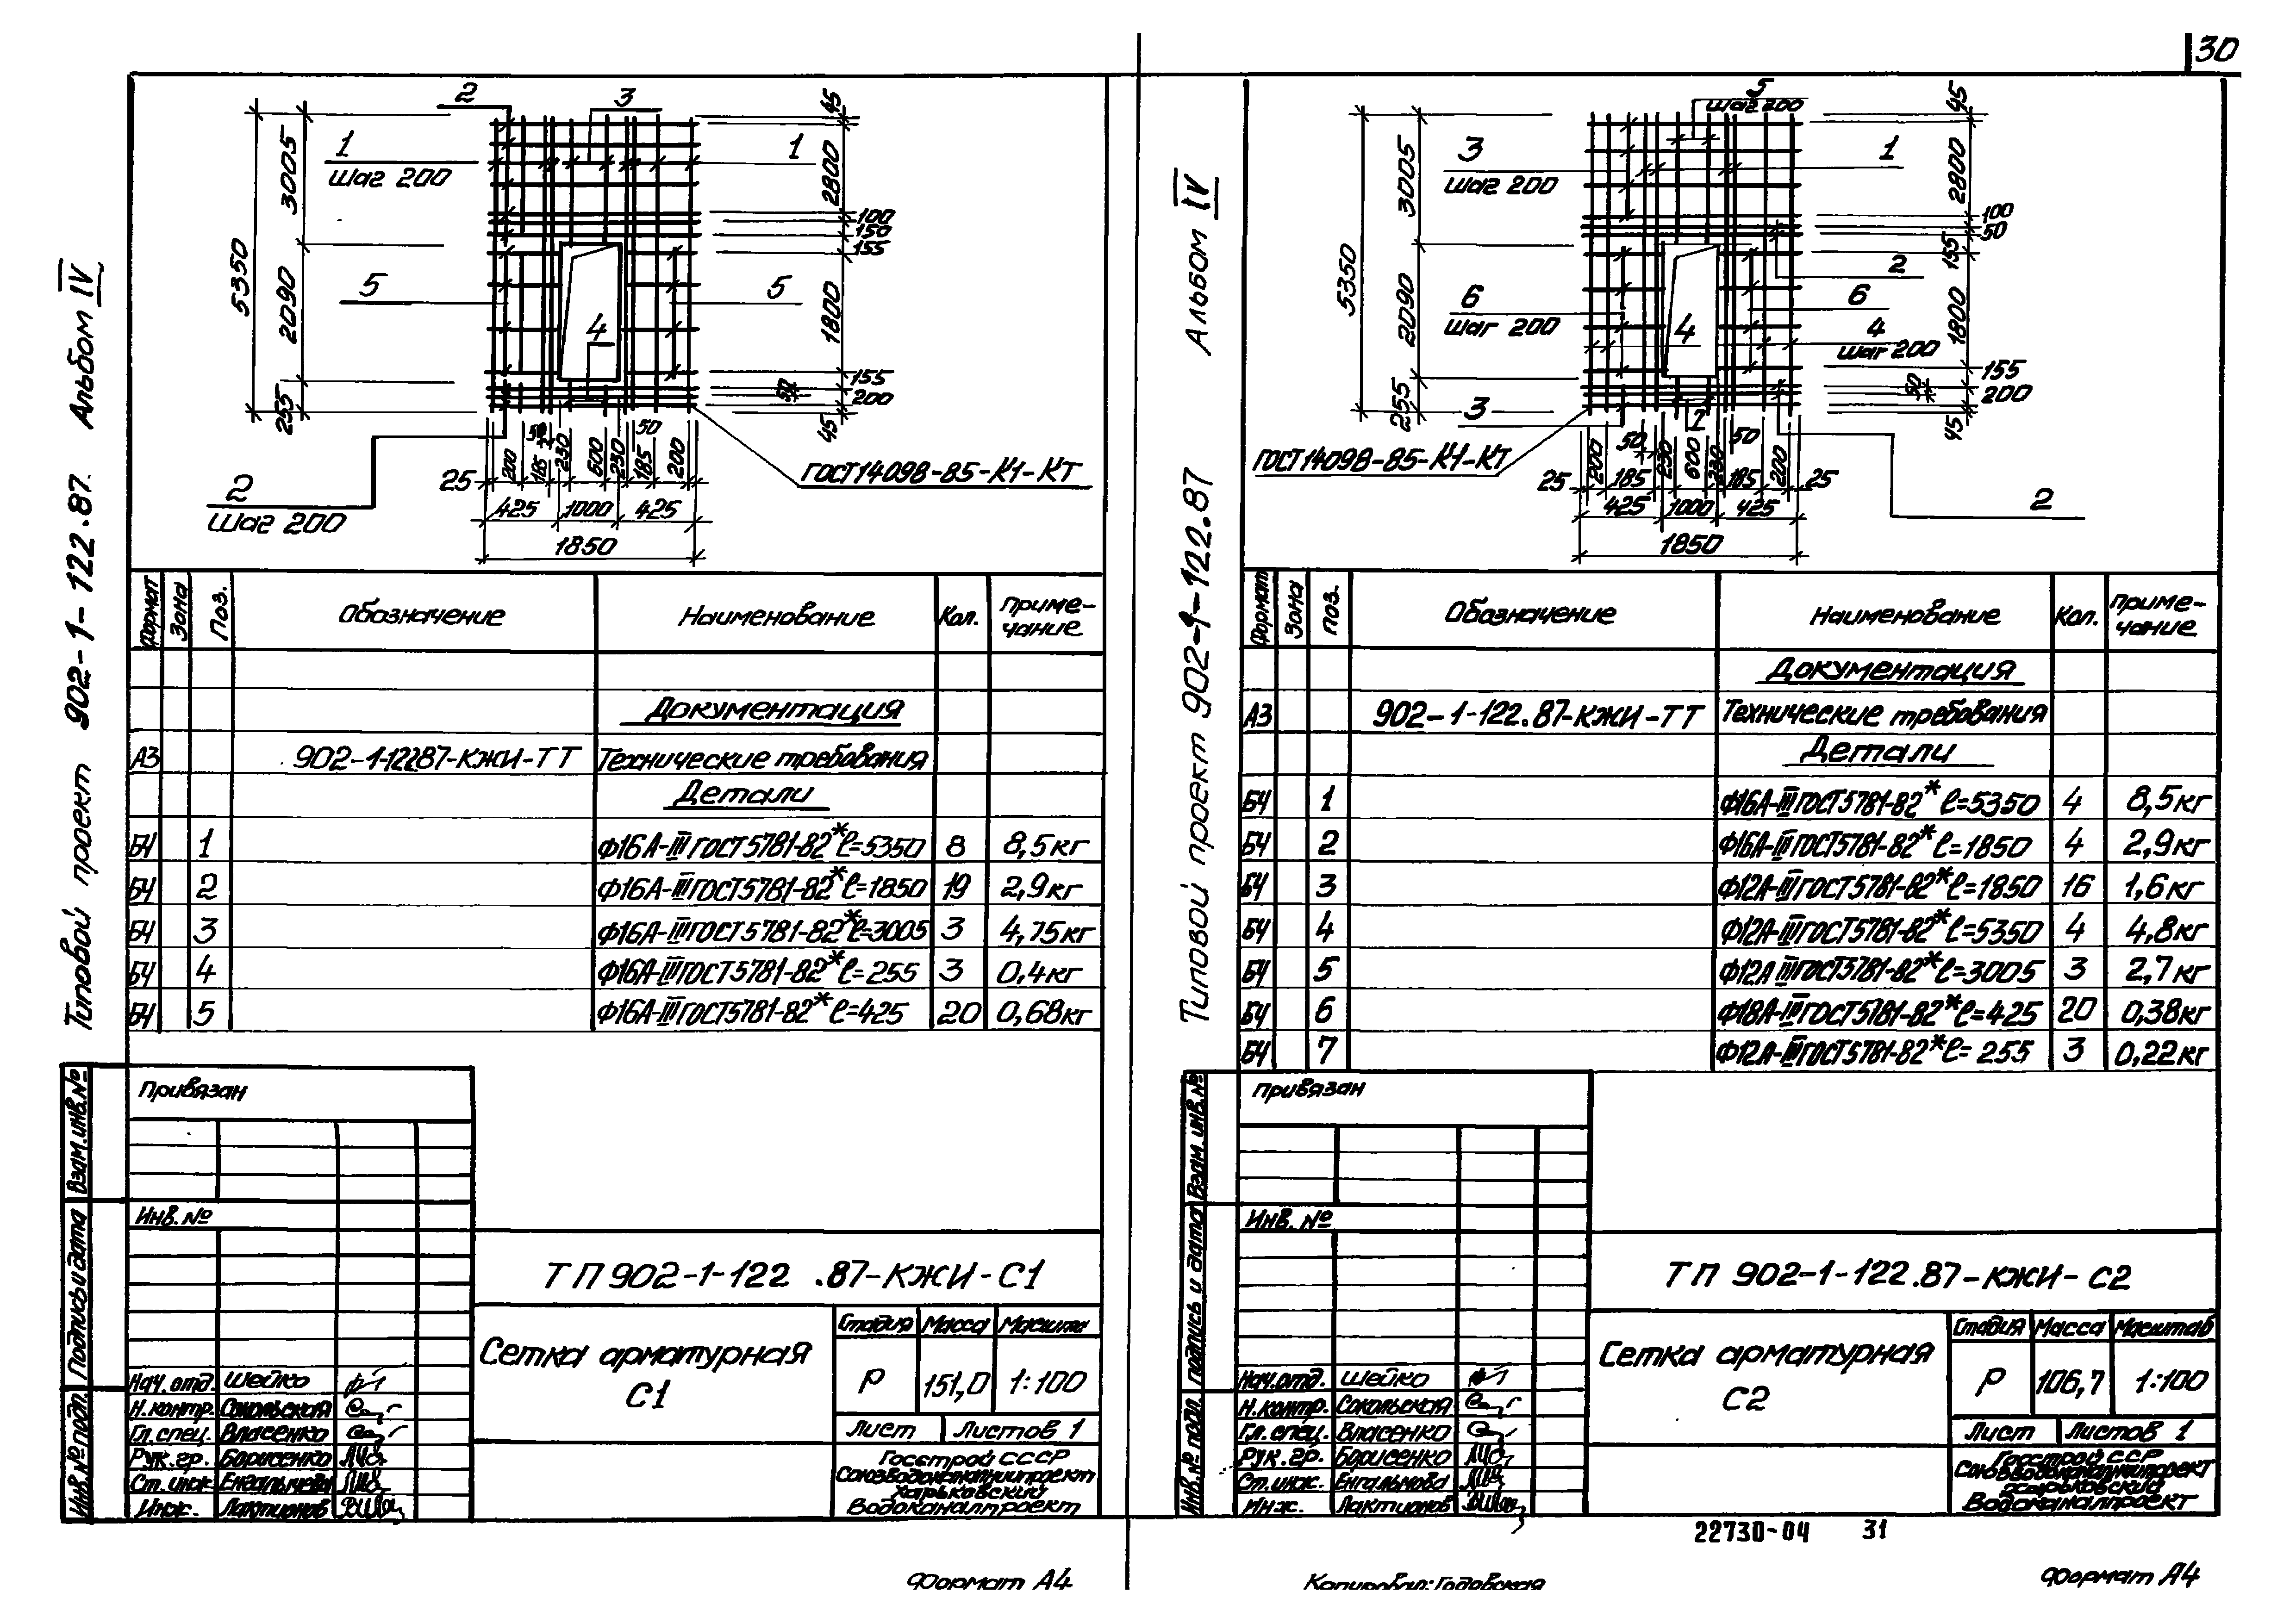 30
Типовой проект 902-1-122.87. Альбом IV
2
3
1
шаг 200
1
5
5
4
2
шаг 200
5350
3005
2090
255
45
2800
100
150
155
1800
155
50
200
45
25
200
185
50
230
600
230
50
185
200
425
1000
425
1850
ГОСТ14098-85-К1-КТ
Формат
Зона
Поз.
Обозначение
Наименование
Кол.
Приме-
чание
Документация
А3 902-1-122.87-КЖИ-ТТ Технические требования
Детали
БЧ 1 Ф16А-III ГОСТ5781-82* ℓ=5350 8 8,5кг
БЧ 2 Ф16А-III ГОСТ5781-82* ℓ=1850 19 2,9кг
БЧ 3 Ф16А-III ГОСТ5781-82* ℓ=3005 3 4,75кг
БЧ 4 Ф16А-III ГОСТ5781-82* ℓ=255 3 0,4кг
БЧ 5 Ф16А-III ГОСТ5781-82* ℓ=425 20 0,68кг
Привязан
Инв. №
Взам. инв. №
Подпись и дата
Инв. № подл.
ТП 902-1-122 .87-КЖИ-С1
Сетка арматурная
С1
Стадия Масса Масштаб
Р 151,0 1:100
Лист Листов 1
Нач.отд. Шейко
Н.контр. Сокольская
Гл.спец. Власенко
Рук.гр. Борисенко
Ст.инж. Енгалычева
Инж. Лактионов
Госстрой СССР
Союзводоканалниипроект
Харьковский
Водоканалпроект
Формат А4
Типовой проект 902-1-122.87 Альбом IV
5
шаг 200
3
шаг 200
1
2
6
шаг 200
6
4
4
шаг 200
3
7
2
5350
3005
2090
255
45
2800
100
50
155
1800
155
50
200
45
25
200
185
50
230
600
230
50
185
200
25
425
1000
425
1850
ГОСТ14098-85-К1-КТ
Формат
Зона
поз.
Обозначение
Наименование
Кол.
Приме-
чание
Документация
А3 902-1-122.87-КЖИ-ТТ Технические требования
Детали
БЧ 1 Ф16А-III ГОСТ5781-82* ℓ=5350 4 8,5кг
БЧ 2 Ф16А-III ГОСТ5781-82* ℓ=1850 4 2,9кг
БЧ 3 Ф12А-III ГОСТ5781-82* ℓ=1850 16 1,6кг
БЧ 4 Ф12А-III ГОСТ5781-82* ℓ=5350 4 4,8кг
БЧ 5 Ф12А III ГОСТ5781-82* ℓ=3005 3 2,7кг
БЧ 6 Ф18А-III ГОСТ5781-82* ℓ=425 20 0,38кг
БЧ 7 Ф12А-III ГОСТ5781-82* ℓ= 255 3 0,22кг
Привязан
Инв. №
Взам. инв. №
подпись и дата
Инв. № подл.
ТП 902-1-122.87-КЖИ-С2
Сетка арматурная
С2
Стадия Масса Масштаб
Р 106,7 1:100
Лист Листов 1
Нач.отд. Шейко
Н.контр. Сокольская
Гл.спец. Власенко
Рук.гр. Борисенко
Ст.инж. Енгалычева
Инж. Лактионов
Госстрой СССР
Союзводоканалниипроект
Харьковский
Водоканалпроект
22730-04 31
Копировал: Годовская
Формат А4